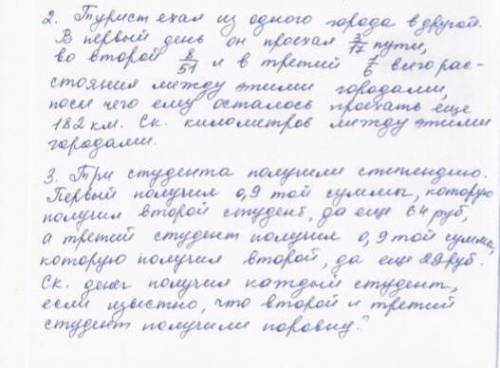 2. Турист ехал из одного города в другой.
В первый день он проехал 3/17 пути,
во второй 8/51 и в третий 7/6 всего рас-
стояния между этими городами,
после чего ему осталось проехать еще
182 км. Ск. километров между этими
городами.
3. Три студента получили стипендию.
Первый получил 0,9 той суммы, которую
получил второй студент, да еще 64 руб,
а третий студент получил 0,9 той суммы,
которую получил второй, да еще 28 руб.
Ск. денег получил каждый студент,
если известно, что второй и третий
студент получили поровну?